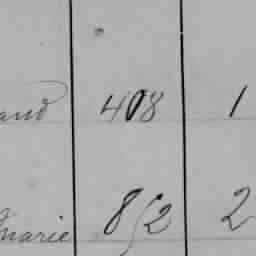 and 408 1
marie 852 2